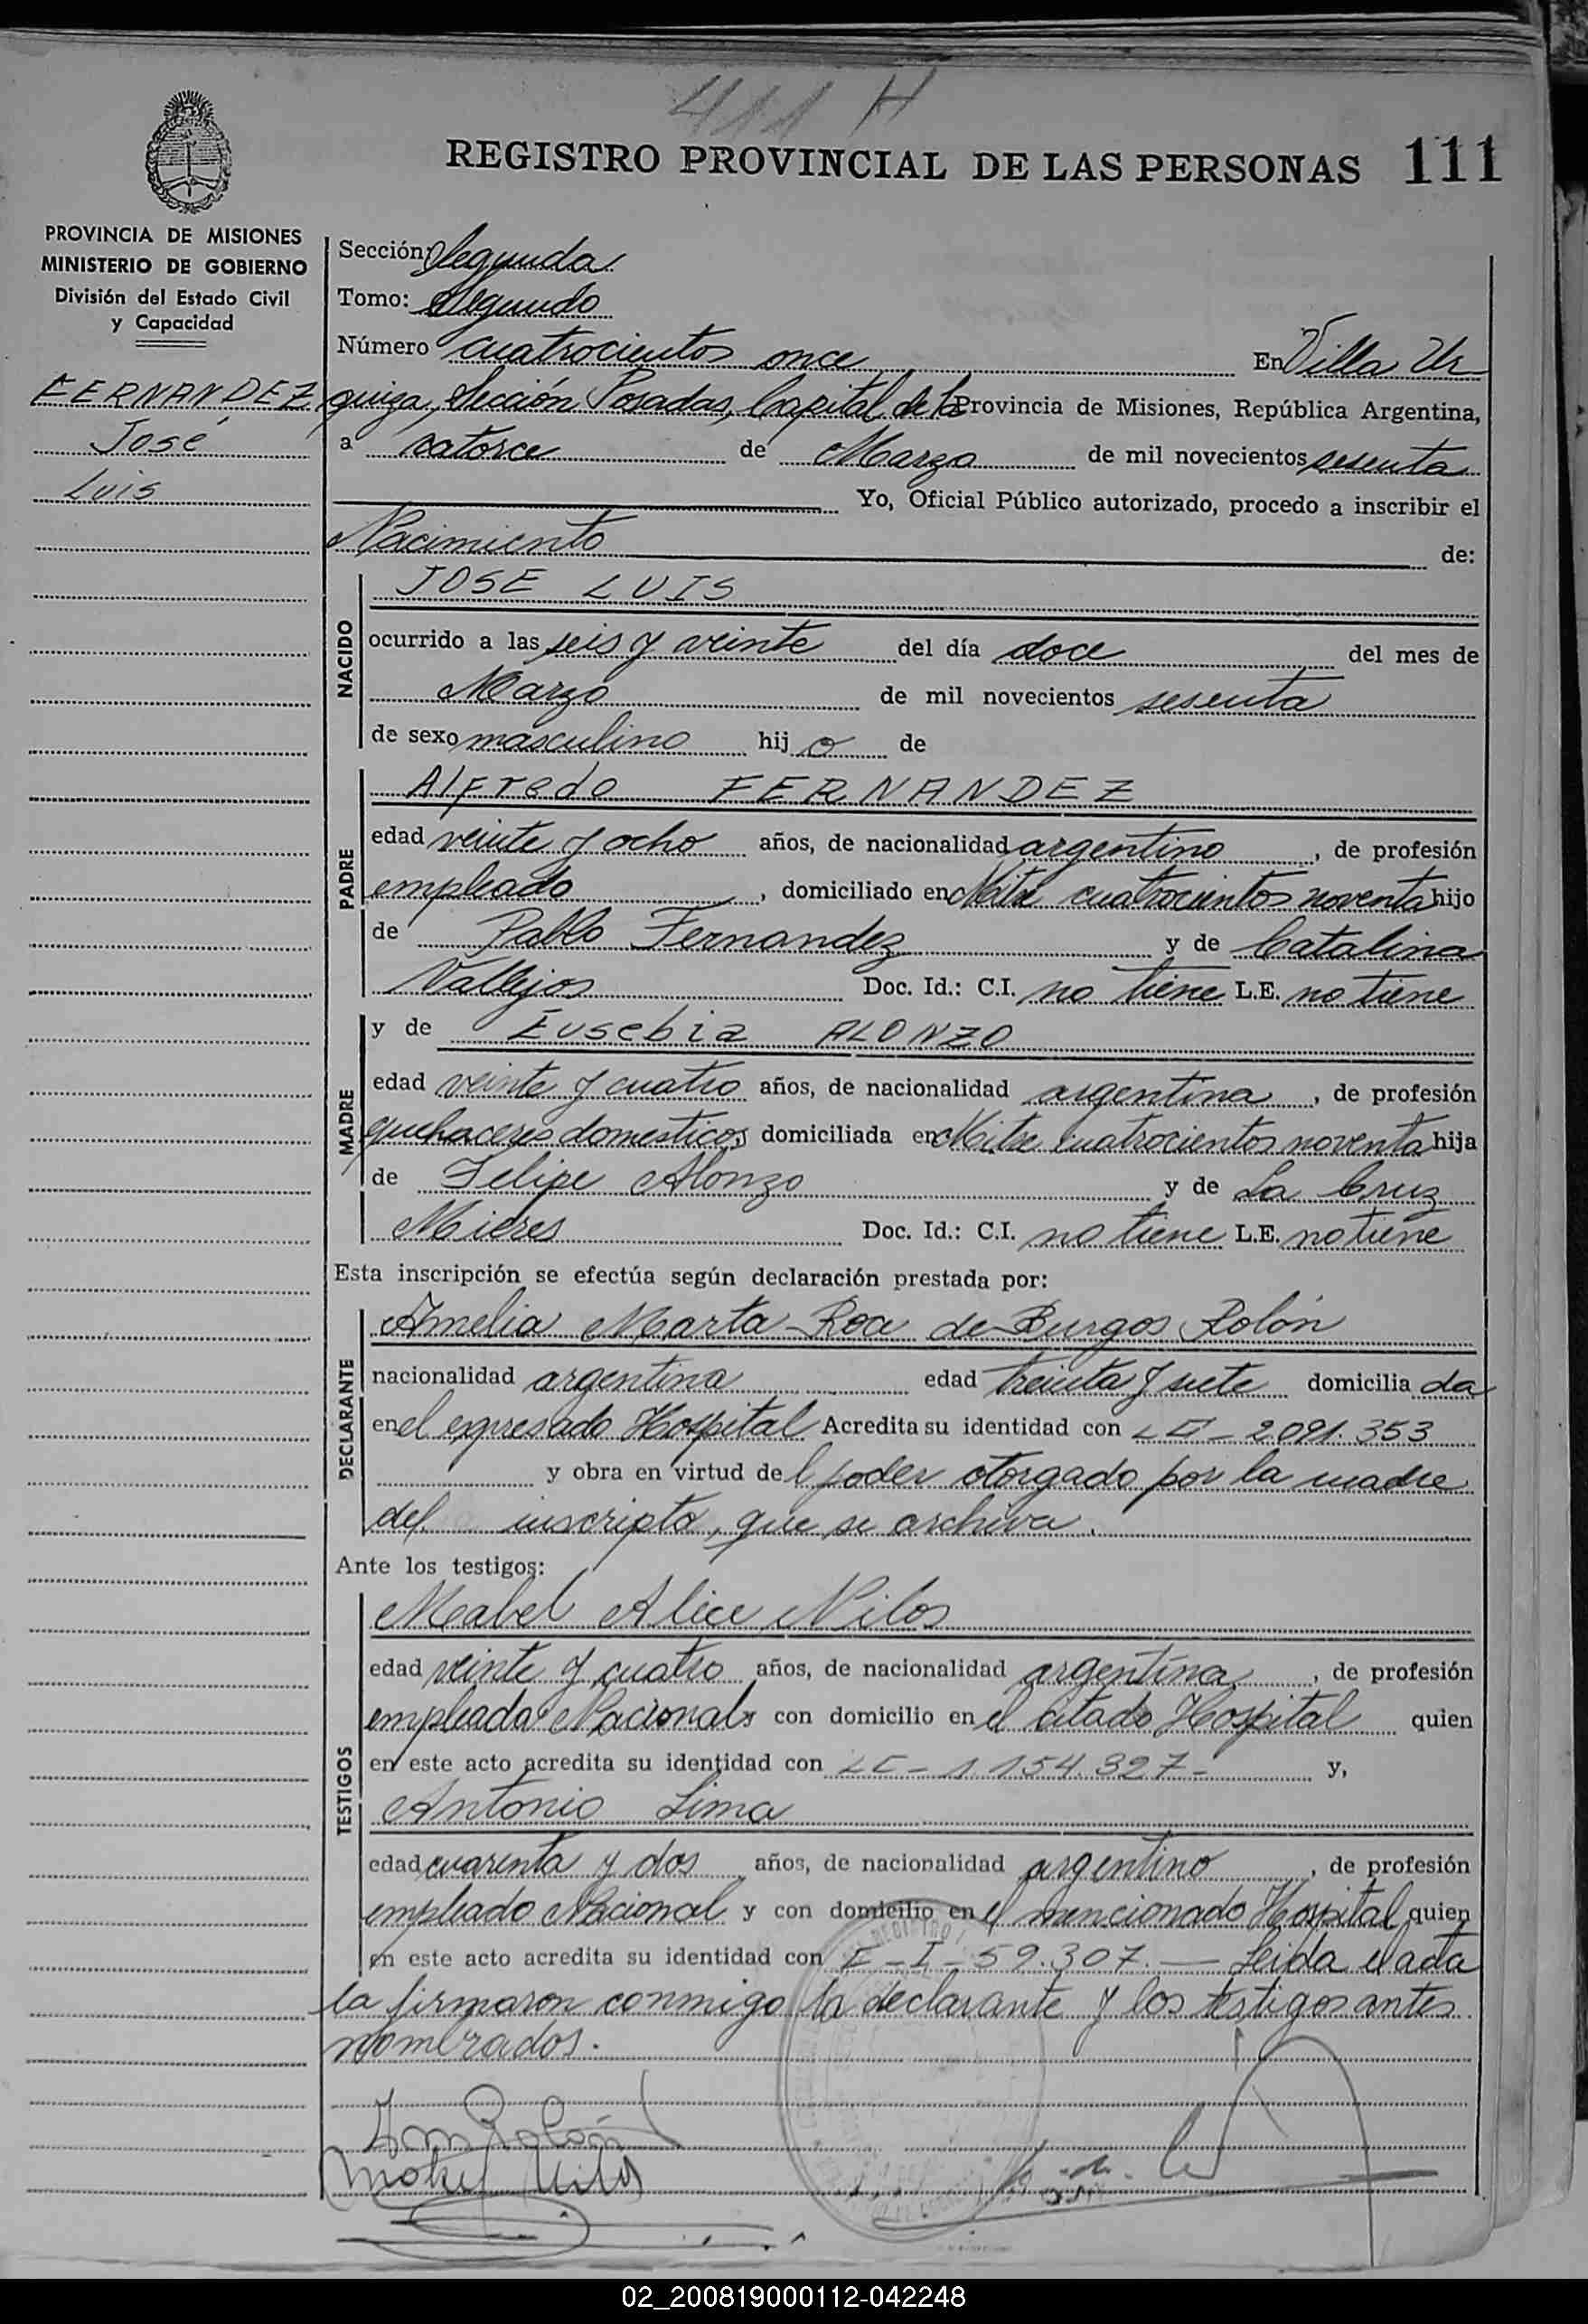 411 H
REGISTRO PROVINCIAL DE LAS PERSONAS 111
PROVINCIA DE MISIONES
MINISTERIO DE GOBIERNO
División del Estado Civil
y Capacidad
FERNANDEZ
José
Luis
Sección: Segunda
Tomo: Segundo
Número cuatrocientos once En Villa Ur
quiza, Sección Posadas, Capital de la Provincia de Misiones, República Argentina,
a catorce de Marzo de mil novecientos sesenta
Yo, Oficial Público autorizado, procedo a inscribir el
Nacimiento de:
NACIDO
JOSE LUIS
ocurrido a las seis y veinte del día doce del mes de
Marzo de mil novecientos sesenta
de sexo masculino hij o de
PADRE
Alfredo FERNANDEZ
edad veinte y ocho años, de nacionalidad argentino, de profesión
empleado, domiciliado en Mitre cuatrocientos noventa hijo
de Pablo Fernandez y de Catalina
Vallejos Doc. Id.: C.I. no tiene L.E. no tiene
MADRE
y de Eusebia ALONZO
edad veinte y cuatro años, de nacionalidad argentina, de profesión
quehaceres domesticos domiciliada en Mitre cuatrocientos noventa hija
de Felipe Alonzo y de La Cruz
Mieres Doc. Id.: C.I. no tiene L.E. no tiene
Esta inscripción se efectúa según declaración prestada por:
DECLARANTE
Amelia Marta Roa de Burgos Rolón
nacionalidad argentina edad treinta y siete domicilia da
en el expresado Hospital Acredita su identidad con 2.091.353
y obra en virtud de l poder otorgado por la madre
del inscripto, que se archiva.
Ante los testigos:
TESTIGOS
Mabel Alice Nilos
edad veinte y cuatro años, de nacionalidad argentina, de profesión
empleada Nacional y con domicilio en el citado Hospital quien
en este acto acredita su identidad con LC - 1.154.327 - y,
Antonio Lima
edad cuarenta y dos años, de nacionalidad argentino, de profesión
empleado Nacional y con domicilio en el mencionado Hospital quien
en este acto acredita su identidad con - I - 59.307. — Leida el acta
la firmaron conmigo la declarante y los testigos antes
nombrados.
02_200819000112-042248